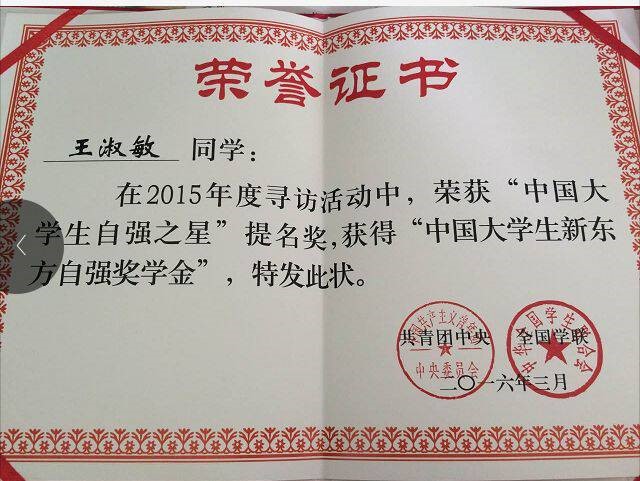 荣誉证书
王淑敏 同学：
在2015年度寻访活动中，荣获“中国大
学生自强之星”提名奖,获得“中国大学生新东
方自强奖学金”，特发此状。
共青团中央 全国学联
中国共产主义青年团
中央委员会
中华全国学生联合会
二〇一六年三月